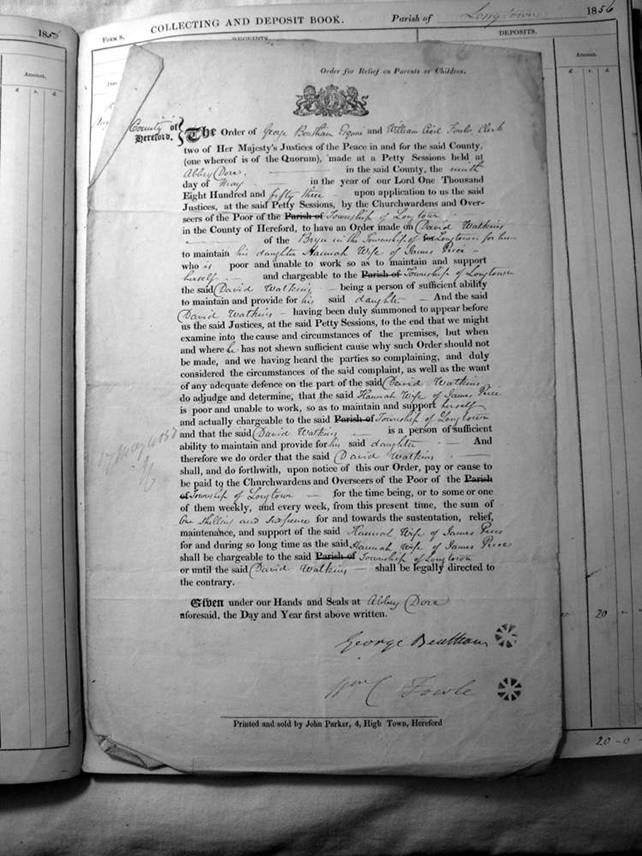 1855
COLLECTING AND DEPOSIT BOOK.
Parish of Longtown
1856
FORM S.
RECEIPTS.
DEPOSITS.
Amount.
Amount.
Order for Relief on Parents or Children.
County of
Hereford.
The Order of George Bentham Esquire and William Clerk
two of Her Majesty's Justices of the Peace in and for the said County,
(one whereof is of the Quorum), made at a Petty Sessions held at
Abbey Dore, in the said County, the ninth
day of May in the year of our Lord One Thousand
Eight Hundred and fifty three upon application to us the said
Justices, at the said Petty Sessions, by the Churchwardens and Over-
seers of the Poor of the Parish of Township of Longtown
in the County of Hereford, to have an Order made on David Watkins
of the Bryn in the Township of Longtown for him
to maintain his daughter Hannah Wife of James Price
who is poor and unable to work so as to maintain and support
herself and chargeable to the Parish of Township of Longtown
the said David Watkins being a person of sufficient ability
to maintain and provide for his said daughter And the said
David Watkins having been duly summoned to appear before
us the said Justices, at the said Petty Sessions, to the end that we might
examine into the cause and circumstances of the premises, but when
and where he has not shewn sufficient cause why such Order should not
be made, and we having heard the parties so complaining, and duly
considered the circumstances of the said complaint, as well as the want
of any adequate defence on the part of the said David Watkins
do adjudge and determine, that the said Hannah Wife of James Price
is poor and unable to work, so as to maintain and support herself
and actually chargeable to the said Parish of Township of Longtown
and that the said David Watkins is a person of sufficient
ability to maintain and provide for his said daughter And
therefore we do order that the said David Watkins
shall, and do forthwith, upon notice of this our Order, pay or cause to
be paid to the Churchwardens and Overseers of the Poor of the Parish
of Township of Longtown for the time being, or to some or one
of them weekly, and every week, from this present time, the sum of
One shilling and sixpence for and towards the sustentation, relief,
maintenance, and support of the said Hannah Wife of James Price
for and during so long time as the said Hannah Wife of James Price
shall be chargeable to the said Parish of Township of Longtown
or until the said David Watkins shall be legally directed to
the contrary.
Given under our Hands and Seals at Abbey Dore
aforesaid, the Day and Year first above written.
George Bentham
Wm C Fowle
Printed and sold by John Parker, 4, High Town, Hereford
20
20 - 0